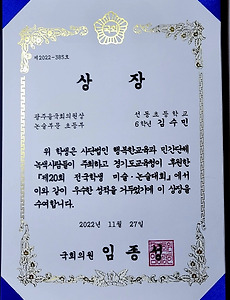 제2022-385호
상 장
광주을국회의원상
논술부문 초등부
선동초등학교
6학년 김수민
위 학생은 사단법인 행복한교육과 민간단체
녹색사람들이 주최하고 경기도교육청이 후원한
「제20회 전국학생 미술·논술대회」에서
이와 같이 우수한 성적을 거두었기에 이 상장을
수여합니다.
2022년 11월 27일
국회의원 임종성